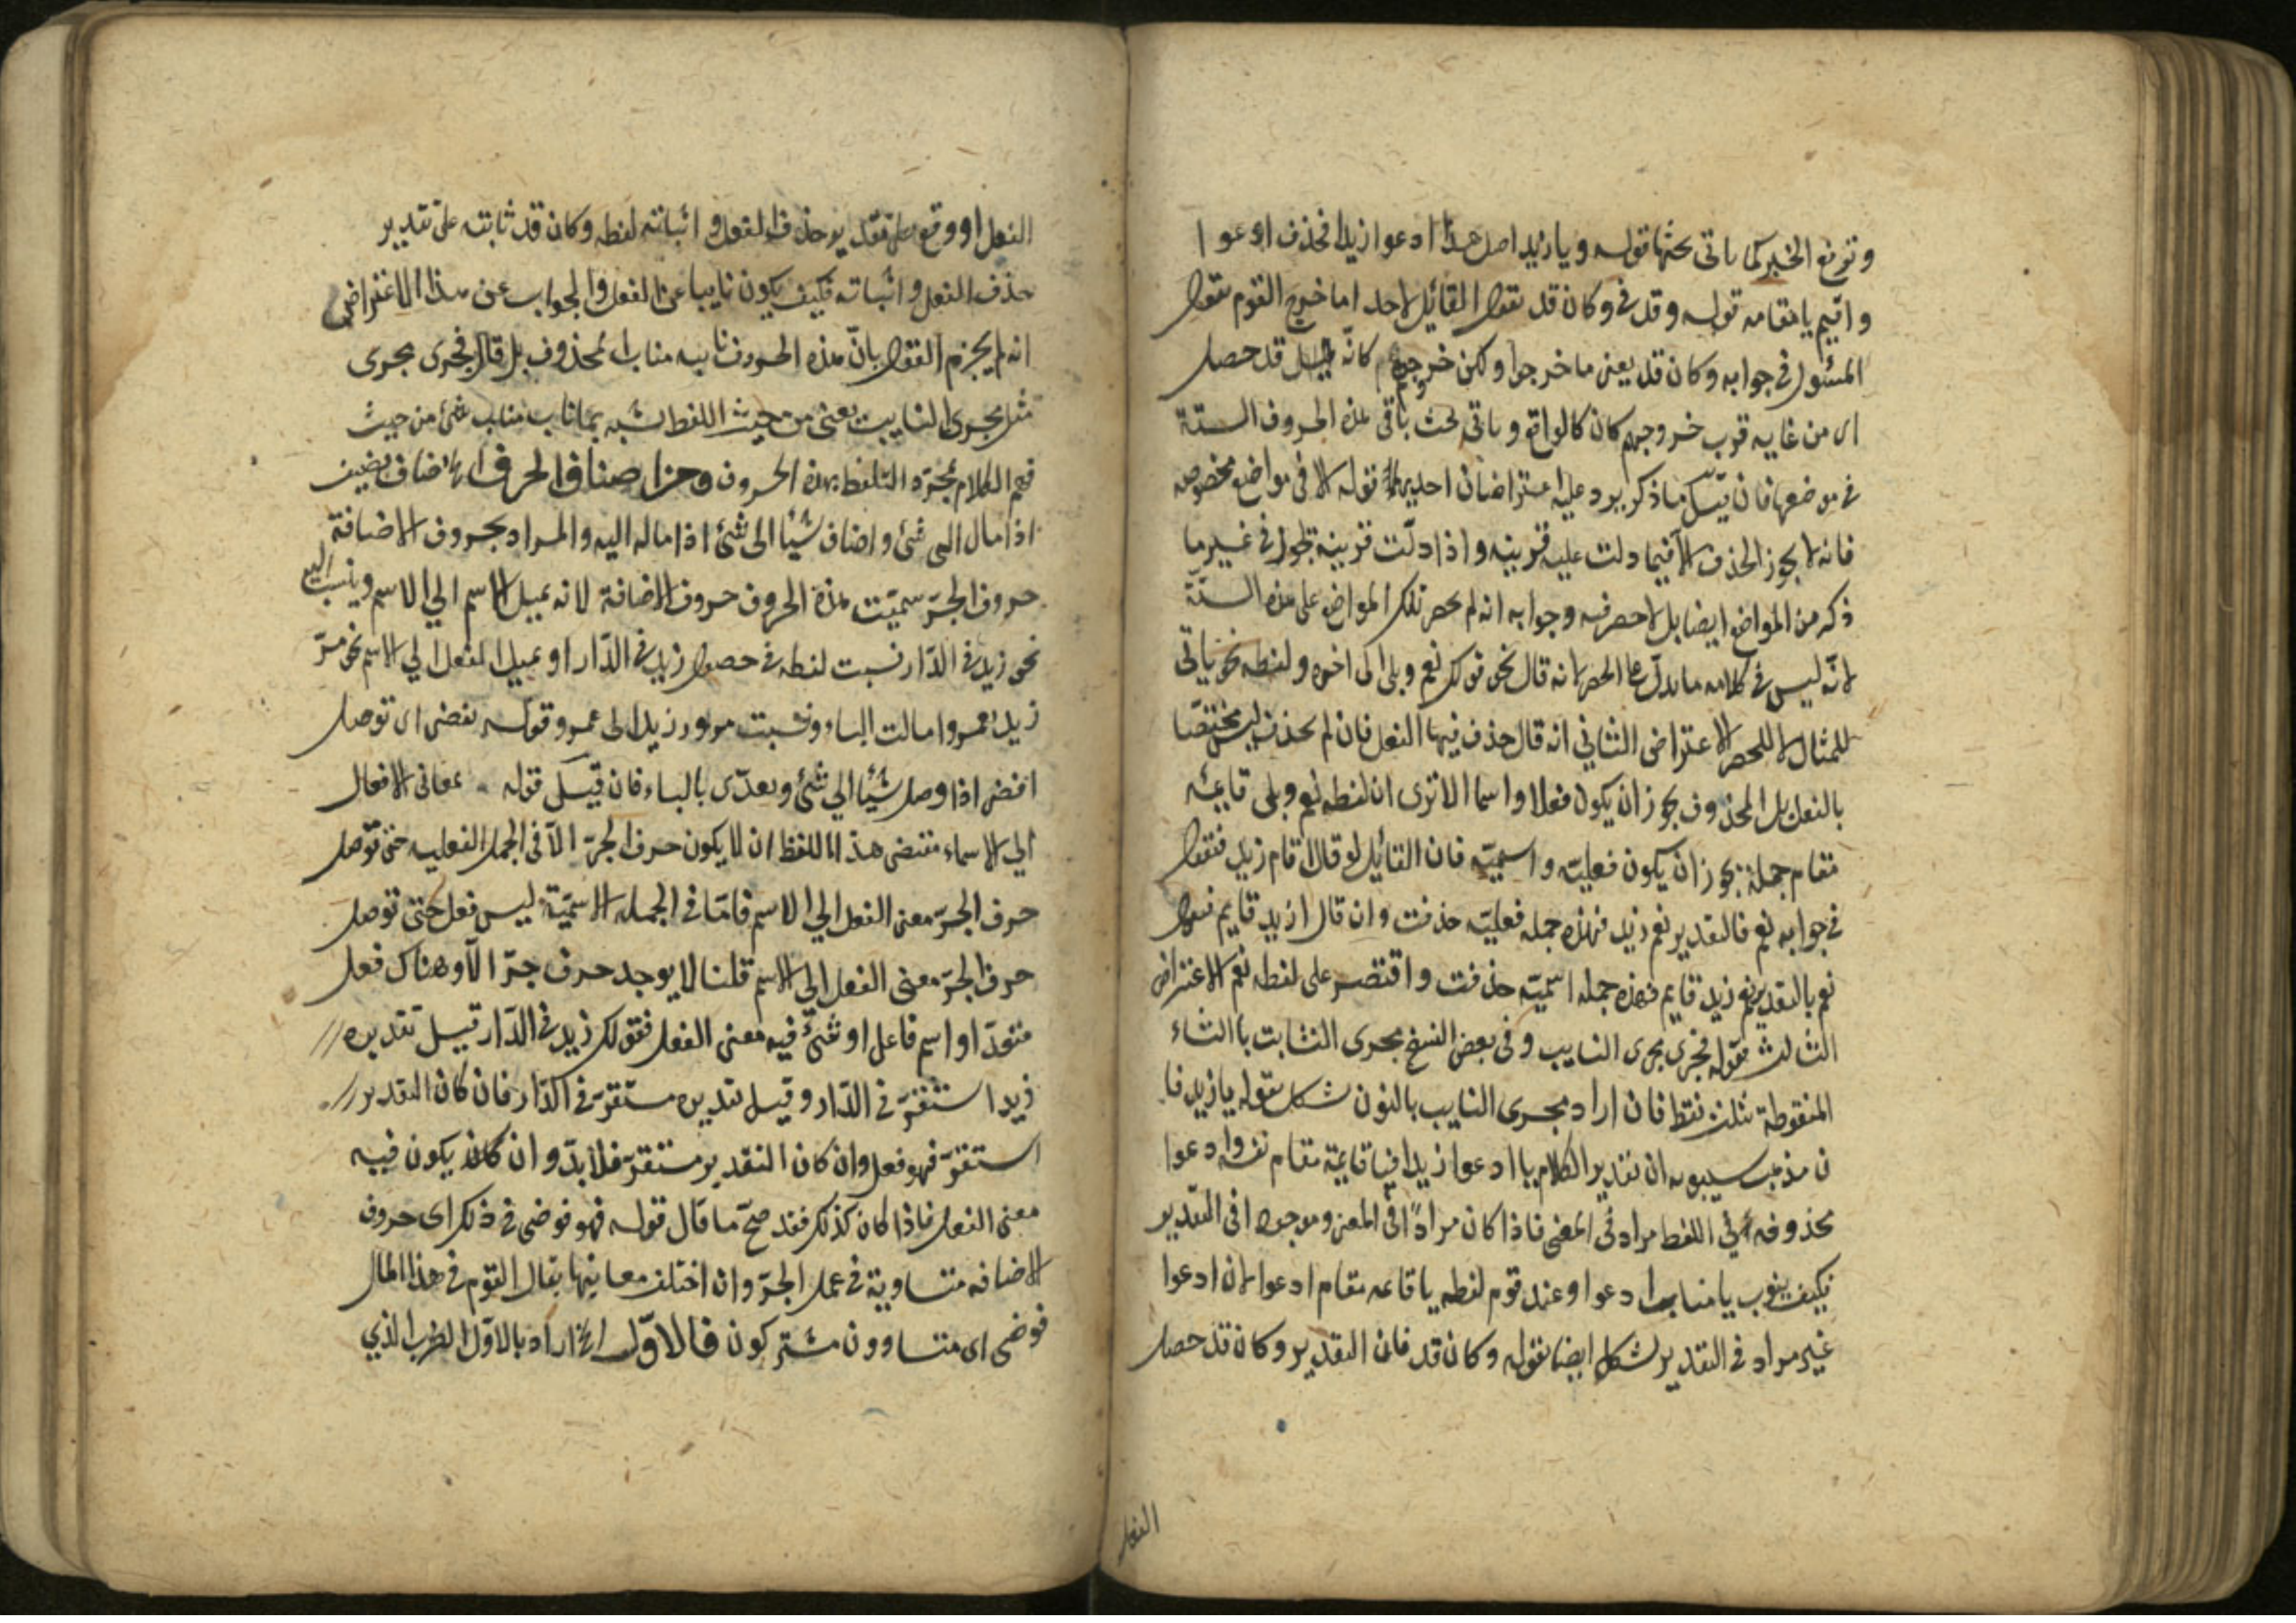 وترفع الخبر كما ياتى بحثها قوله ويا زيد اصل هذا ادعوا زيدا فحذف ادعوا
واقيم يا مقامه قوله وقد فى وكان قد يقول القائل لاحد اما خرج القوم يقول
المسئول فى جوابه وكان قد يعنى ما خرجوا ولكن خروجهم كانه قد حصل
اى من غاية قرب خروجهم كان كالواقع وياتى بحث باقى هذه الحروف الستة
فى موضعها فان قيل ما ذكر يرد عليه اعتراضان احديها قوله الا فى مواضع مخصوصه
فانه لا يجوز الحذف الا فيما دلت عليه قرينة واذا دلّت قرينة يجوز فى غير ما
ذكر من المواضع ايضا بل لا حصر فيه وجوابه انه لم يحصر تلك المواضع على هذه الستة
لانه ليس فى كلامه ما يدلّ على الحصر لانه قال نحو قولك نعم وبلى الى اخره ولفظه نحو ياتى
للمثال لا للحصر الاعتراض الثانى انه قال حذف فيها الفعل فان لم يحذف ليس مختصّا
بالفعل بل المحذوف يجوز ان يكون فعلا واسما الا ترى ان لفظه نعم وبلى قايمة
مقام جملة يجوز ان يكون فعليّة واسميّة فان القائل لو قال اقام زيد فتقول
فى جوابه نعم فالتقدير نعم زيد فهذه جمله فعليّه حذفت وان قال ازيد قايم فتقول
نعم بالتقدير نعم زيد قايم فهذه جمله اسميّة حذفت واقتصر على لفظه نعم الاعتراض
الثالث بقوله فجرى مجرى النايب وفى بعض النسخ مجرى الثابت بالثاء
المنقوطة بثلث نقط فان اراد مجرى النايب بالنون شكل بقوله يا زيد فا
ن مذهب سيبويه ان تقدير الكلام يا ادعوا زيدا فيا قايمة مقام ادعوا
محذوفه فى اللفظ مراد فى المعنى فاذا كان مرادا فى المعنى وموجودا فى التقدير
فكيف ينوب يا مناب ادعوا وعند قوم لفظه يا قايمه مقام ادعوا لان ادعوا
غير مراد فى التقدير لشكل ايضا بقوله وكان قد فان التقدير وكان قد حصل
الفعل
الفعل او وقع على تقدير حذف الفعل واثباته لفظه وكان قد ثابته على تقدير
حذف الفعل واثباته فكيف يكون نايبا عن الفعل والجواب عن هذا الاعتراض
انه لم يجزم القول بانّ هذه الحروف نايبه مناب المحذوف بل قال فجرى مجرى
مثل مجرى النايب يعنى من حيث اللفظ لشبه بما ناب مناب شئ من حيث
فهم الكلام بمجرّد التلفظ بهذه الحروف وحزا صناف الحرف اى اضاف يضيف
اذا مال الى شئ واضاف شيئا الى شئ اذا ماله اليه والمراد بحروف الاضافة
حروف الجرّ سميّت هذه الحروف حروف الاضافة لانه يميل الاسم الي الاسم وينسب اليه
نحو زيد فى الدّار نسبت لفظه فى حصول زيد فى الدّار او يميل الفعل الي الاسم نحو مرّ
زيد بعمرو امالت الباء ونسبت مرور زيد الى عمرو وقوله يفضى اى توصل
افضى اذا وصل شيئا الي شئ ويعدّى بالباء فان قيل قوله بمعانى الافعال
الي الاسماء مقتضى هذا اللفظ ان لا يكون حرف الجرّ الا فى الجمل الفعليه حتى توصل
حرف الجرّ معنى الفعل الي الاسم فامّا فى الجمله الاسميّة ليس فعل حتى توصل
حرف الجرّ معنى الفعل الى الاسم قلنا لا يوجد حرف جرّ الا وهناك فعل
متعدّ او اسم فاعل او شئ فيه معنى الفعل فقولك زيد فى الدّار قيل تقديره
زيد استقرّ فى الدّار وقيل تقديره مستقرّ فى الدّار فان كان التقدير
استقرّ فهو فعل وان كان التقدير مستقرّ فلا بدّ وان كان يكون فيه
معنى الفعل فاذا كان كذلك فقد صحّ ما قال قوله فهو فوضى فى ذلك اى حروف
الاضافه متساوية فى عمل الجرّ وان اختلف معانيها يقال القوم فى هذا المال
فوضى اى متساوون مشتركون فالاوّل اى اراد بالاوّل الضرب الذي